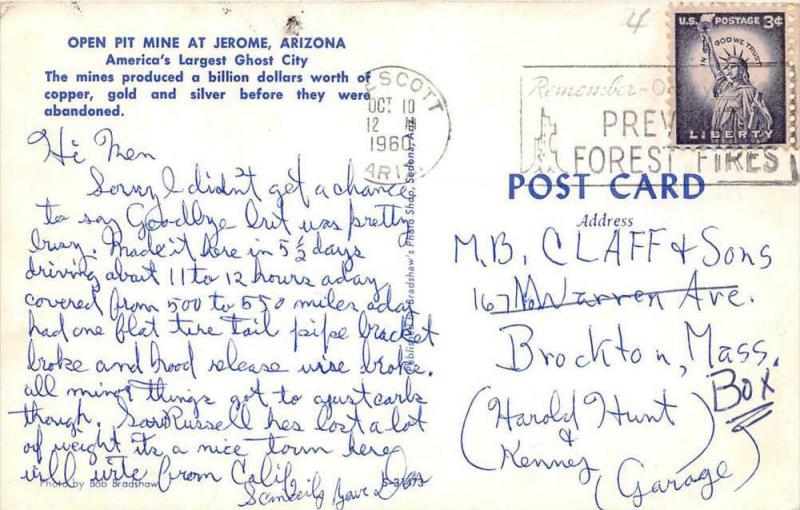 OPEN PIT MINE AT JEROME, ARIZONA
America's Largest Ghost City
The mines produced a billion dollars worth of
copper, gold and silver before they were
abandoned.
Hi Men
Sorry I didn't get a chance
to say Goodbye but was pretty
busy. Made it here in 5 1/2 days
driving abait 11 to 12 hours a day
covered from 500 to 550 miles a day
had one flat tire tail pipe bracket
broke and hood release wire broke.
all minor things got to ajust carb
though. Saw Russell hes lost a lot
of weight its a nice town here
will write from Calif
Dan
Photo by Bob Bradshaw
S-31373
Bradshaw's Photo Shop, Sedona, Ariz.
4
ESCOTT
OCT 10
12
1960
ARIZ.
Remember-O
PREV
FOREST FIRES
U.S. POSTAGE 3¢
IN GOD WE TRUST
LIBERTY
POST CARD
Address
M.B. CLAFF & Sons
167 N Warren Ave.
Brockton, Mass.
Box
(Harold Hunt)
&
Kenney
(Garage)